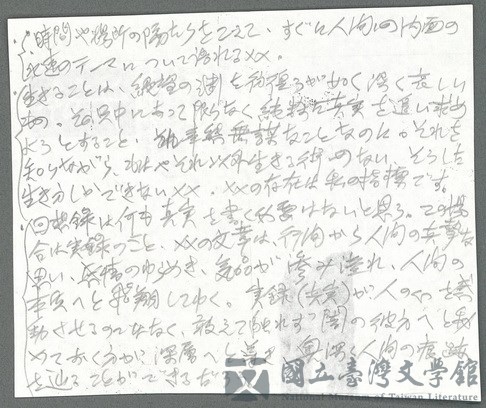 時間や場所の隔たりをこえて、すぐに人間の内面の
永遠のテーマについて語れる××。
生きることは、絶望の淵を彷徨るが如く深く哀しい
もの。その只中にあって限りなく純粋に真実を追い求め
ようとすること、無謀なことなのに。それを
知りながら、もはやそれ以外生きる術のない、そうした
生き方しかできない××。××の存在は私の指標です。
回想録は何も真実を書く必要はないと思う。この場
合は実録のこと、××の文章は、行間から人間の真摯な
思い、感情のゆらめき、気品が滲み溢れ、人間の
真実へと飛翔してゆく。実録(真実)が人の心を感
動させるのではなく、敢えて触れず闇の彼方へと秘
めておく方が深層へと導き、奥深く人間の痕跡
を辿ることができるだ
國立臺灣文學館
National Museum of Taiwan Literature